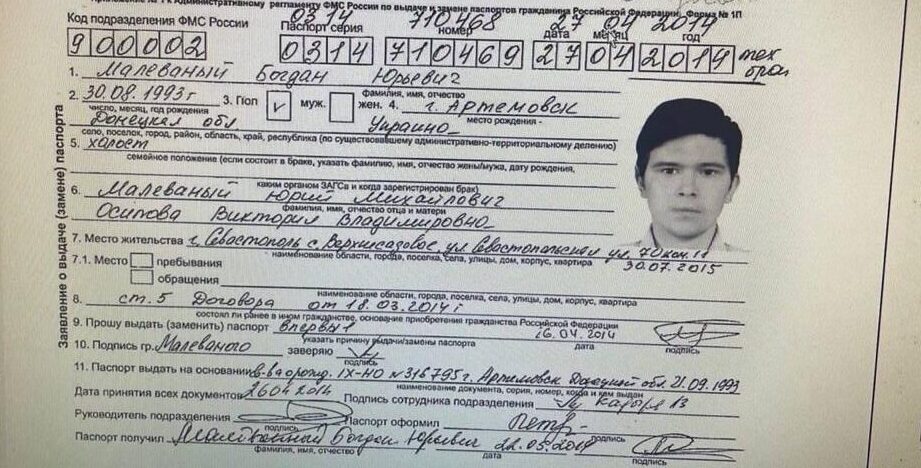 Административному регламенту ФМС России по выдаче и замене паспортов гражданина Российской Федерации, Форма № 1П
0314 710468 27 04 2014
Код подразделения ФМС России Паспорт серия номер дата месяц год
900002 0314 710469 27 04 2019 тех брак
1. Малеваный Богдан Юрьевич
фамилия, имя, отчество
2. 30.08.1993г 3. Пол v муж. жен. 4. г. Артемовск
число, месяц, год рождения место рождения -
Донецкая обл Украина
село, поселок, город, район, область, край, республика (по существовавшему административно-территориальному делению)
5. холост
семейное положение (если состоит в браке, указать фамилию, имя, отчество жены/мужа, дату рождения,
каким органом ЗАГСа и когда зарегистрирован брак)
6. Малеваный Юрий Михайлович
фамилия, имя, отчество отца и матери
Осипова Виктория Владимировна
7. Место жительства г. Севастополь с. Верхнесадовое, ул. Севастопольская
наименование области, города, поселка, села, улицы, дом, корпус, квартира
30.07.2015
7.1. Место пребывания
обращения
наименование области, города, поселка, села, улицы, дом, корпус, квартира
8. ст. 5 Договора от 18.03.2014 г
состоял ли ранее в ином гражданстве, основание приобретения гражданства Российской Федерации
9. Прошу выдать (заменить) паспорт впервы 16.04.2014
указать причину выдачи/замены паспорта дата подпись
10. Подпись гр. Малеваного заверяю
подпись
11. Паспорт выдать на основании IX-НО № 316795 г. Артемовск Донецкой обл. 21.09.1993
наименование документа, серия, номер, когда и кем выдан
Дата принятия всех документов 26042014 Подпись сотрудника подразделения
Руководитель подразделения Паспорт оформил
подпись подпись
Паспорт получил Малеваный Богдан Юрьевич 22.05.2014
фамилия, имя, отчество дата подпись
Заявление о выдаче (замене) паспорта